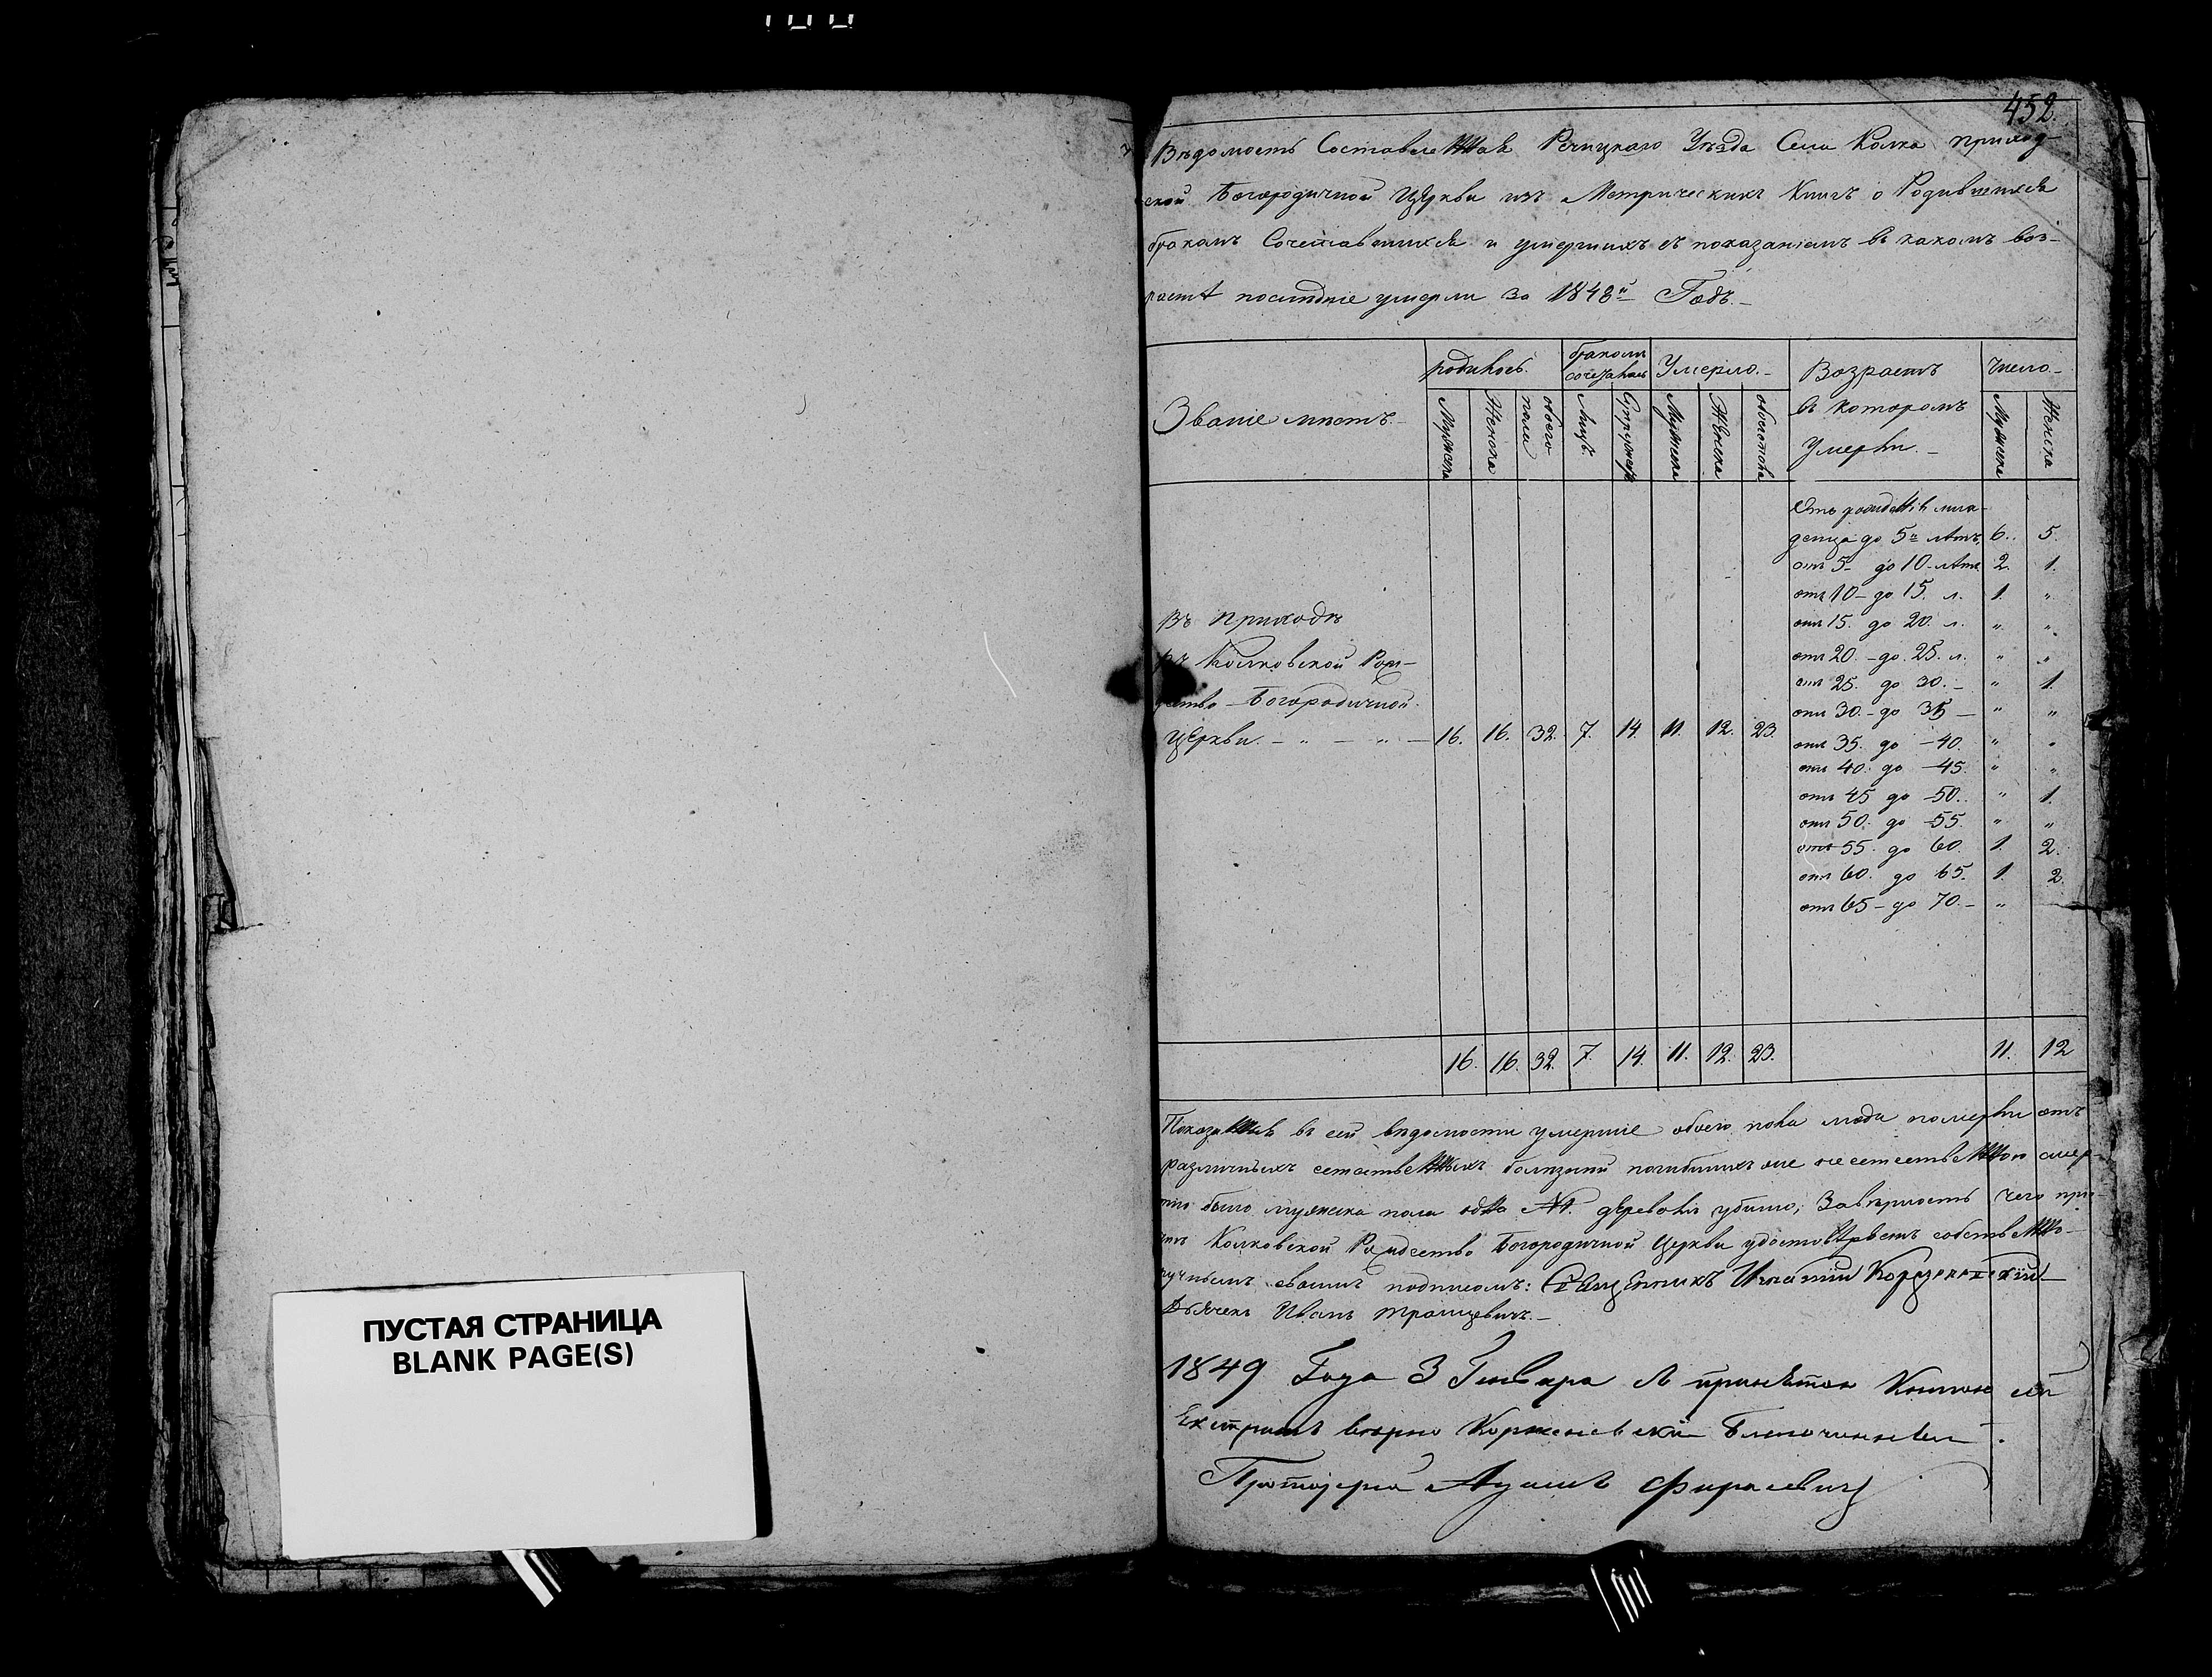 452.
Ведомость Составленная Речицкаго Уезда Села Колка приход
ской Богородичной Церкви изъ Метрическихъ Книгъ о Родившихся
бракомъ Сочетавшихся и умершихъ съ показаніемъ въ какомъ воз-
растѣ последніе умерли за 1848й Годъ.-
Званіе местъ.
родилось.
Мужеска
Женска
обоего пола
бракомъ сочеталось
Лицъ
Супружествъ
Умерло.-
Мужеска
Женска
обоего пола
Возрастъ
въ которомъ
Умерли.-
Число
Мужеска
Женска
Отъ рожденія мла-
денца до 5ти летъ, 6. 5.
отъ 5- до 10- летъ 2. 1.
отъ 10- до 15. л. 1. "
отъ 15. до 20. л. " "
отъ 20.- до 25. л. " "
отъ 25. до 30.- " 1.
отъ 30.- до 35 - " "
отъ 35. до -40. " "
отъ 40. до -45. " "
отъ 45 до -50. " 1.
отъ 50. до -55. " "
отъ 55. до 60. 1. 2.
отъ 60. до 65. 1. 2.
отъ 65- до 70.- "
Въ приходѣ
Колковской Рож-
дество-Богородичной
Церкви.- " - " - 16. 16. 32. 7. 14. 11. 12. 23.
16. 16. 32. 7. 14. 11. 12. 23. 11. 12
Показанныя въ сей ведомости умершіе обоего пола люди померли отъ
различныхъ естественныхъ болезней погибшихъ не естественною смер-
тію было мужеска пола деревомъ убито; Заверность чего при-
Колковской Рождество Богородичной Церкви собственно-
ручнымъ своимъ подписомъ: Священникъ Игнатій
Дьячекъ Иванъ Траицевичъ.-
1849 Года 3 Генваря книгою сей
Екстрактъ верно Корженевскій Благочинный
Протоіерей Адамъ Фирасевич
ПУСТАЯ СТРАНИЦА
BLANK PAGE(S)